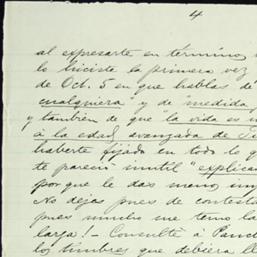 4
al expresarte en término
lo hiciste la primera vez
de Oct. 5 en que hablas de
cualquiera" y de "medida
y también de que "la vida es
á la edad avanzada de
haberte fijado en todo lo
te pareció inutil "explica
por que le das menos
No dejas pues de contesta
pues mucho me temo la
larga! – Consulté á
los timbres que debiera